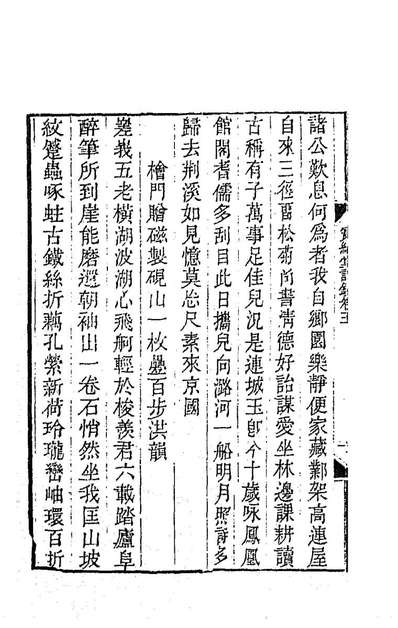 諸公歎息何爲者我自鄉園樂靜便家藏鄴架高連屋
自來三徑畱松菊尚書淸德好詒謀愛坐林邊課耕讀
古稱有子萬事足佳兒況是連城玉卽今十歲咏鳳凰
館閣耆儒多刮目此日攜兒向潞河一船明月照詩多
歸去荆溪如見憶莫忘尺素來京國
檜門贈磁製硯山一枚疊百步洪韻
嵳峩五老橫湖波湖心飛舸輕於梭羨君六載踏廬阜
醉筆所到崖能磨還朝袖山一卷石悄然坐我匡山坡
紋蹙蟲啄蛀古鐵絲折藕孔縈新荷玲瓏巒岫環百折